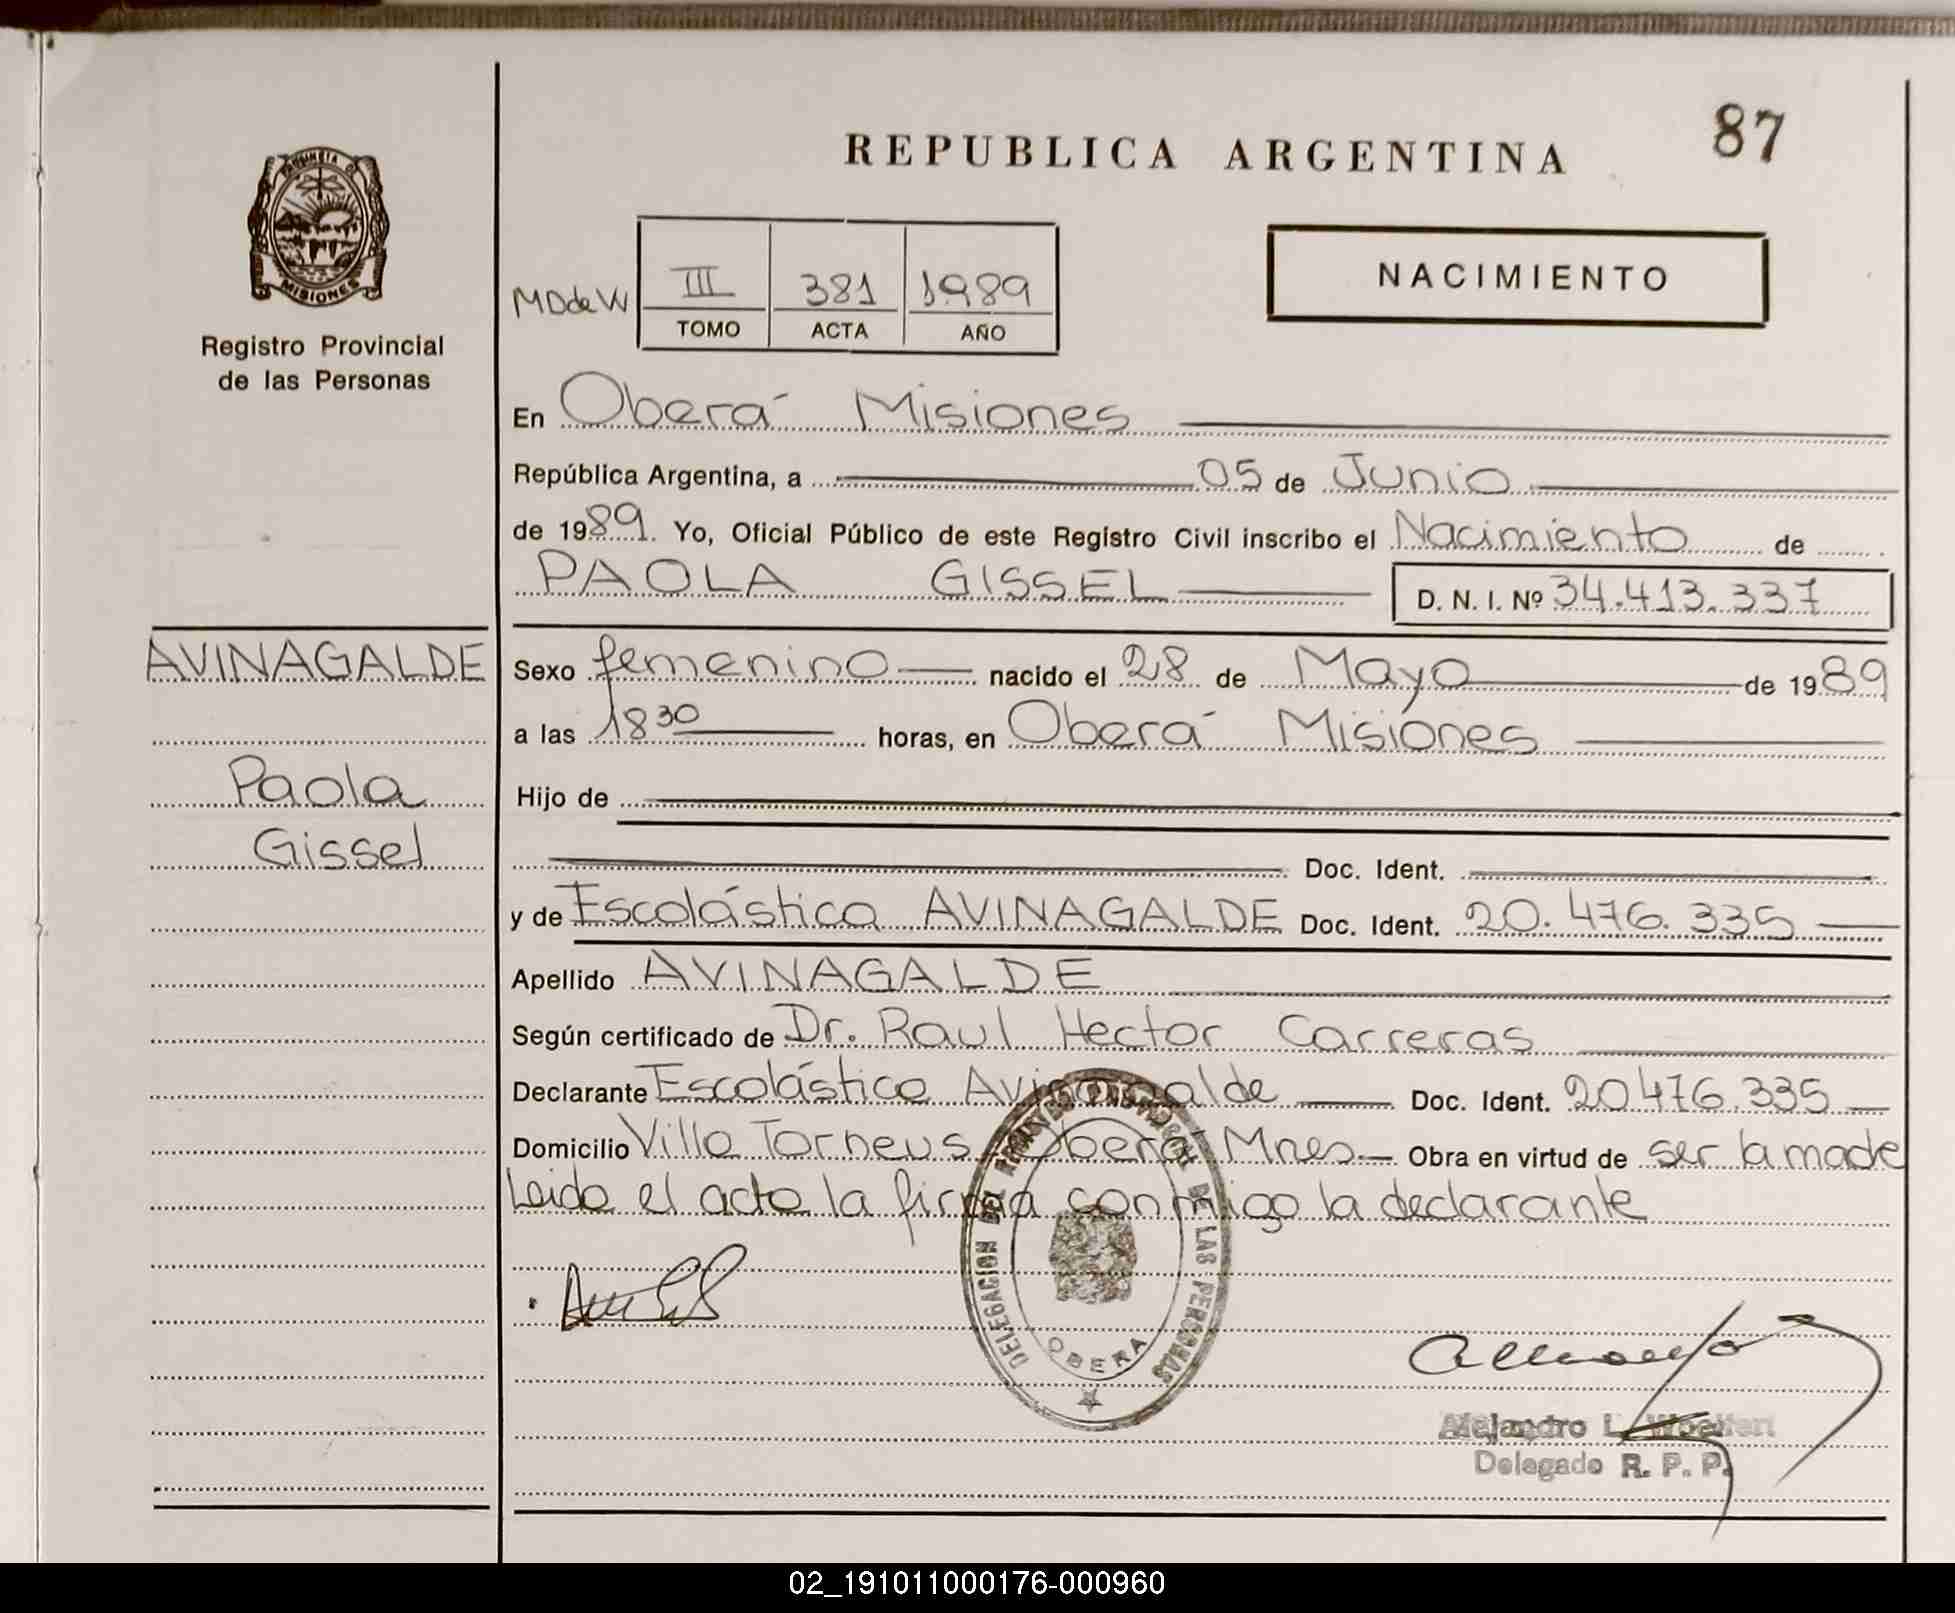 REPUBLICA ARGENTINA
87
PROVINCIA D
MISIONES
Registro Provincial
de las Personas
MDdeW
III
381
1989
TOMO
ACTA
AÑO
NACIMIENTO
En Oberá Misiones
República Argentina, a 05 de Junio
de 1989. Yo, Oficial Público de este Registro Civil inscribo el Nacimiento de
PAOLA GISSEL
D. N. I. Nº 34.413.337
AVINAGALDE
Paola
Gissel
Sexo femenino nacido el 28 de Mayo de 1989
a las 18 30 horas, en Oberá Misiones
Hijo de
Doc. Ident.
y de Escolástica AVINAGALDE Doc. Ident. 20.476.335
Apellido AVINAGALDE
Según certificado de Dr. Raul Hector Carreras
Declarante Escolástica Avinagalde Doc. Ident. 20476.335
Domicilio Villa Torneus Oberá Mnes Obra en virtud de ser la madre
Leida el acta la firma conmigo la declarante
DELEGACION DEL REGISTRO PROVINCIAL DE LAS PERSONAS
OBERA
Alejandro L.
Delegado R. P. P.
02_191011000176-000960